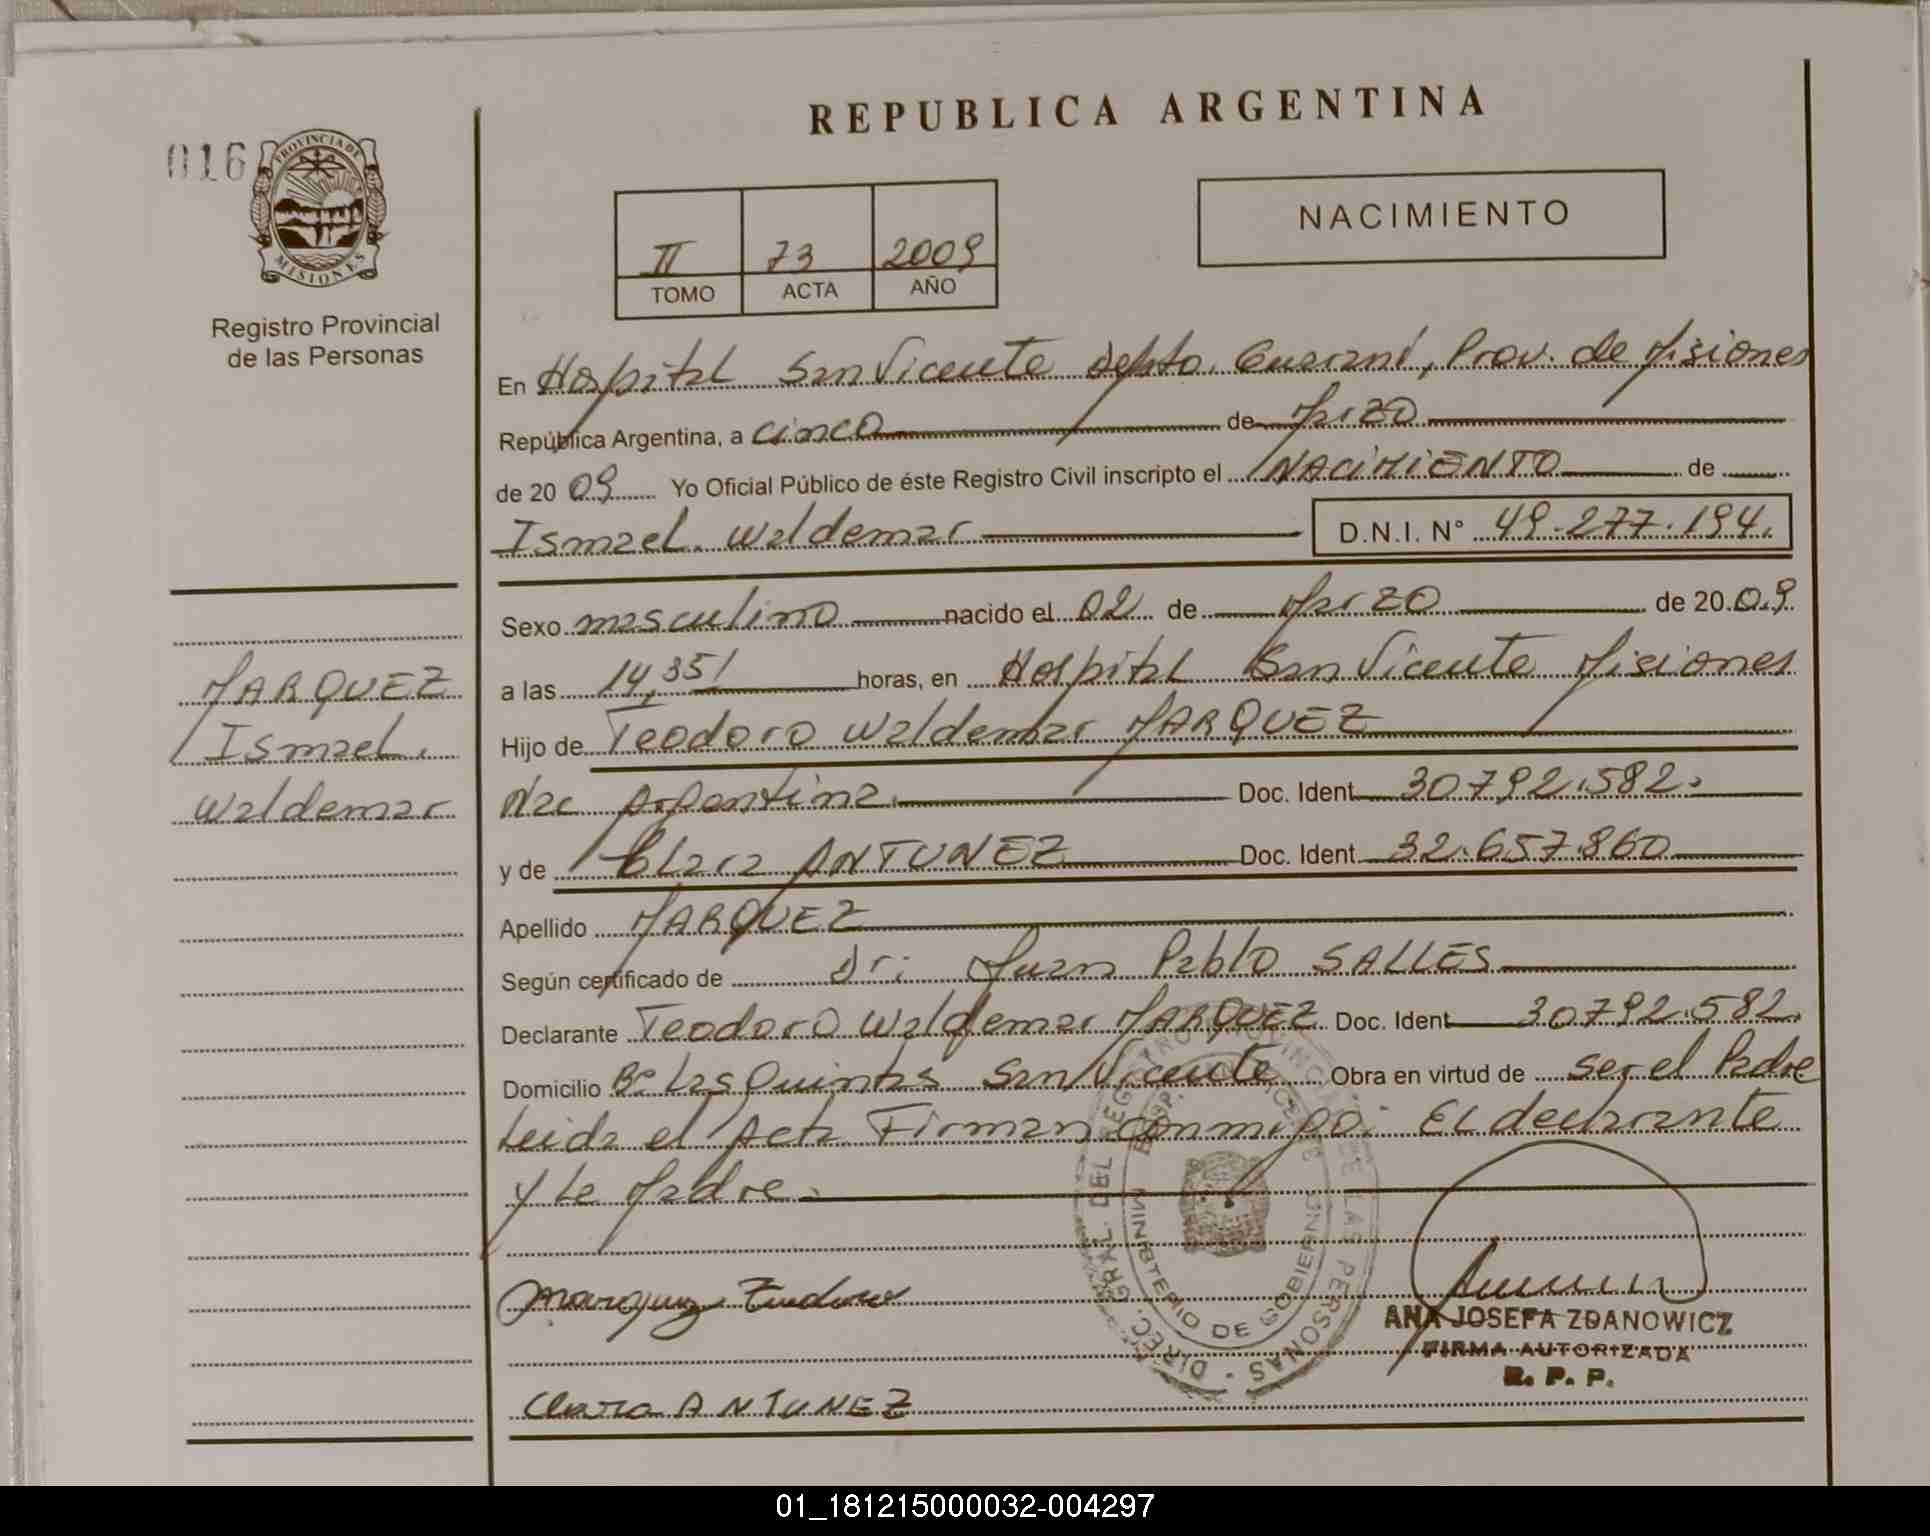 REPUBLICA ARGENTINA
016
PROVINCIA DE
MISIONES
Registro Provincial
de las Personas
II 73 2009
TOMO ACTA AÑO
NACIMIENTO
En Hospital San Vicente Depto. Guaraní, Prov. de Misiones
República Argentina, a cinco de Marzo
de 20 09 Yo Oficial Público de éste Registro Civil inscripto el NACIMIENTO de
Ismael Waldemar D.N.I. N° 49.277.194.
Sexo masculino nacido el 02 de Marzo de 20 09
a las 14,35 horas, en Hospital San Vicente Misiones
Hijo de Teodoro Waldemar MARQUEZ
Nac Argentina. Doc. Ident 30.792.582.
y de Clara ANTUNEZ Doc. Ident 32.657.860
Apellido MARQUEZ
Según certificado de Dr. Juan Pablo SALLES
Declarante Teodoro Waldemar MARQUEZ Doc. Ident 30.792.582.
Domicilio B° Las Quintas San Vicente Obra en virtud de ser el Padre
Leida el Acta Firman conmigo: El declarante
y La Madre.
MARQUEZ
Ismael
Waldemar
Marquez Teodoro
Clara ANTUNEZ
DIREC. GRAL. DEL REGISTRO PROVINCIAL DE LAS PERSONAS
MINISTERIO DE GOBIERNO
ANA JOSEFA ZDANOWICZ
FIRMA AUTORIZADA
R. P. P.
01_181215000032-004297